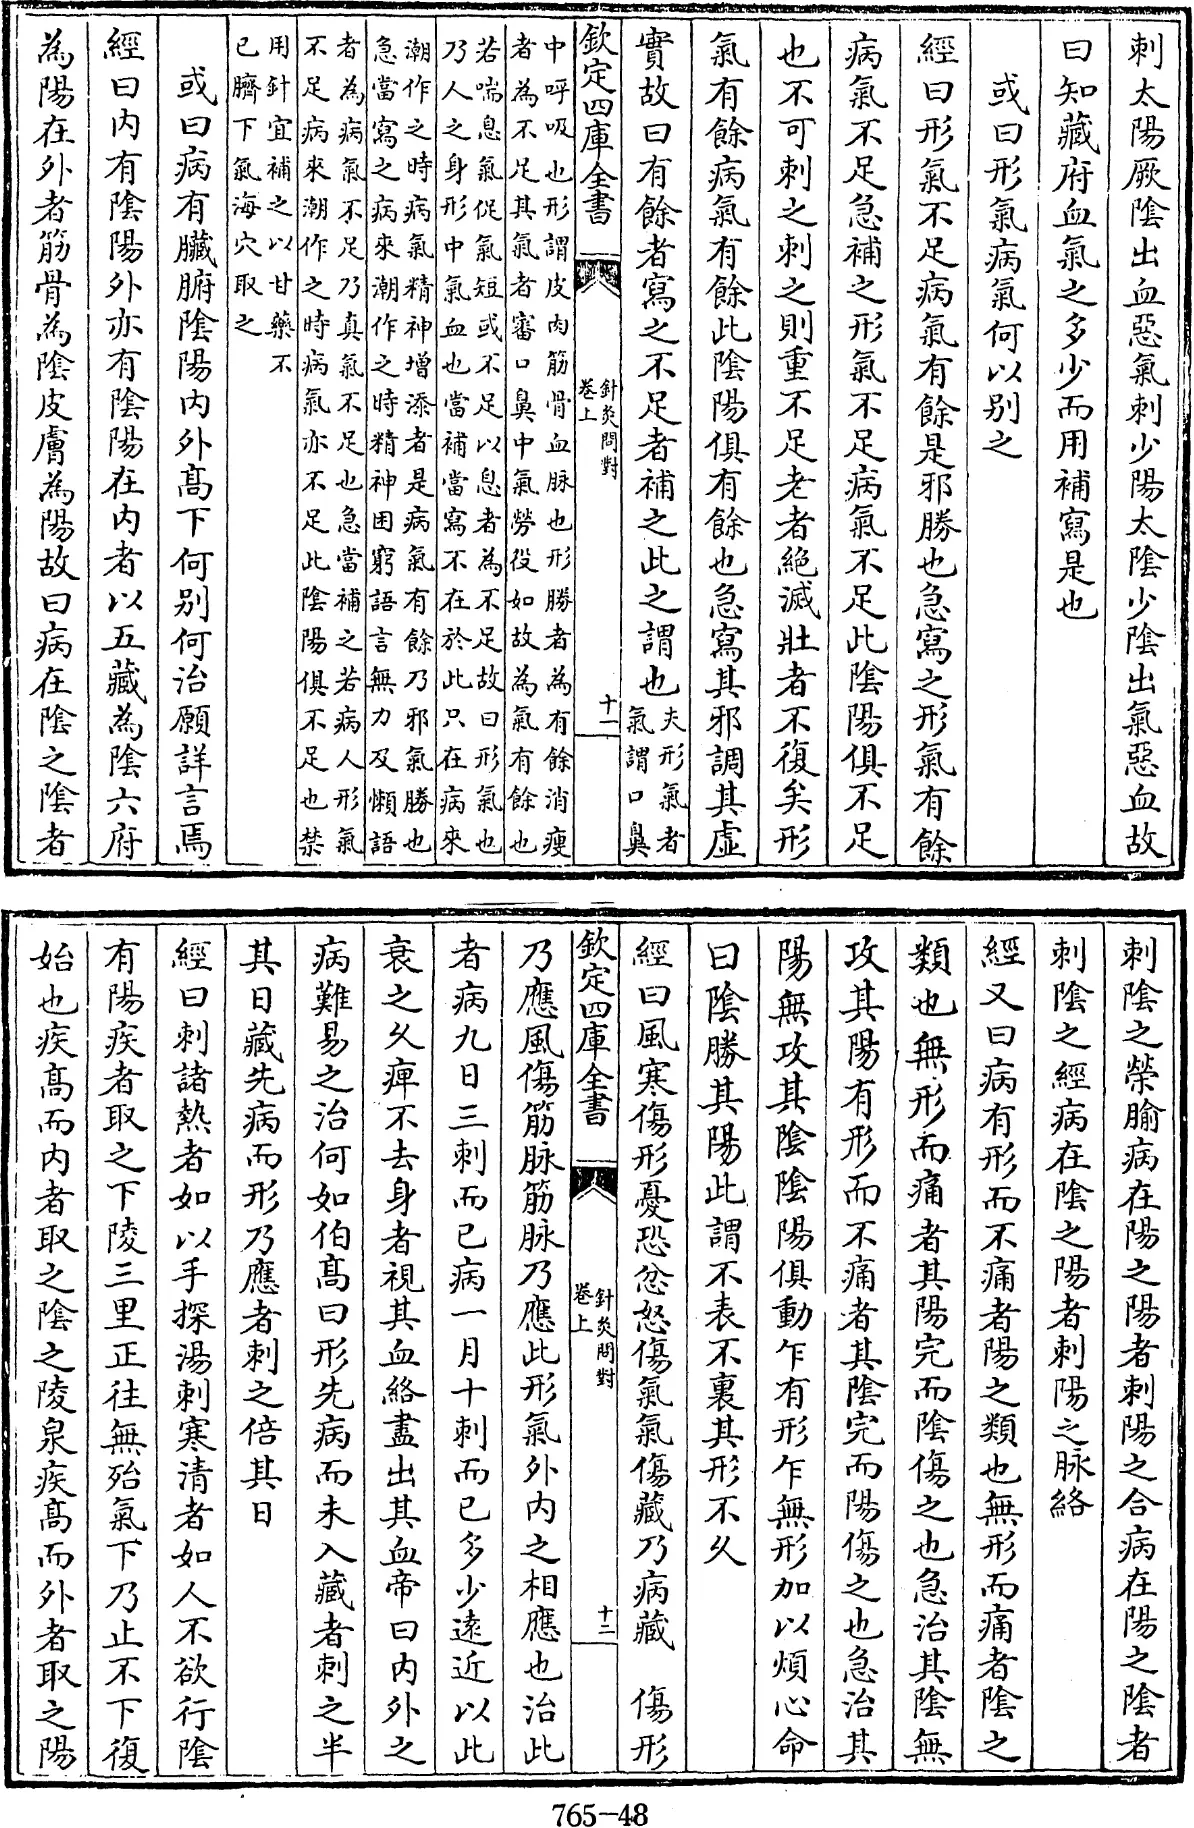 刺太陽厥陰出血惡氣刺少陽太陰少陰出氣惡血故
曰知藏府血氣之多少而用補寫是也
或曰形氣病氣何以別之
經曰形氣不足病氣有餘是邪勝也急寫之形氣有餘
病氣不足急補之形氣不足病氣不足此陰陽俱不足
也不可刺之刺之則重不足老者絕滅壯者不復矣形
氣有餘病氣有餘此陰陽俱有餘也急寫其邪調其虛
實故曰有餘者寫之不足者補之此之謂也夫形氣者
氣謂口鼻
欽定四庫全書
針灸問對
卷上
十一
中呼吸也形謂皮肉筋骨血脉也形勝者為有餘消瘦
者為不足其氣者審口鼻中氣勞役如故為氣有餘也
若喘息氣促氣短或不足以息者為不足故曰形氣也
乃人之身形中氣血也當補當寫不在於此只在病來
潮作之時病氣精神增添者是病氣有餘乃邪氣勝也
急當寫之病來潮作之時精神困窮語言無力及懶語
者為病氣不足乃真氣不足也急當補之若病人形氣
不足病來潮作之時病氣亦不足此陰陽俱不足也禁
用針宜補之以甘藥不
已臍下氣海穴取之
或曰病有臟腑陰陽内外高下何别何治願詳言焉
經曰内有陰陽外亦有陰陽在内者以五藏為陰六府
為陽在外者筋骨為陰皮膚為陽故曰病在陰之陰者
刺陰之榮腧病在陽之陽者刺陽之合病在陽之陰者
刺陰之經病在陰之陽者刺陽之脉絡
經又曰病有形而不痛者陽之類也無形而痛者陰之
類也無形而痛者其陽完而陰傷之也急治其陰無
攻其陽有形而不痛者其陰完而陽傷之也急治其
陽無攻其陰陰陽俱動乍有形乍無形加以煩心命
曰陰勝其陽此謂不表不裏其形不久
經曰風寒傷形憂恐忿怒傷氣氣傷藏乃病藏　傷形
欽定四庫全書
針灸問對
卷上
十二
乃應風傷筋脉筋脉乃應此形氣外内之相應也治此
者病九日三刺而已病一月十刺而已多少遠近以此
衰之久痺不去身者視其血絡盡出其血帝曰内外之
病難易之治何如伯高曰形先病而未入藏者刺之半
其日藏先病而形乃應者刺之倍其日
經曰刺諸熱者如以手探湯刺寒清者如人不欲行陰
有陽疾者取之下陵三里正往無殆氣下乃止不下復
始也疾高而内者取之陰之陵泉疾高而外者取之陽
765-48